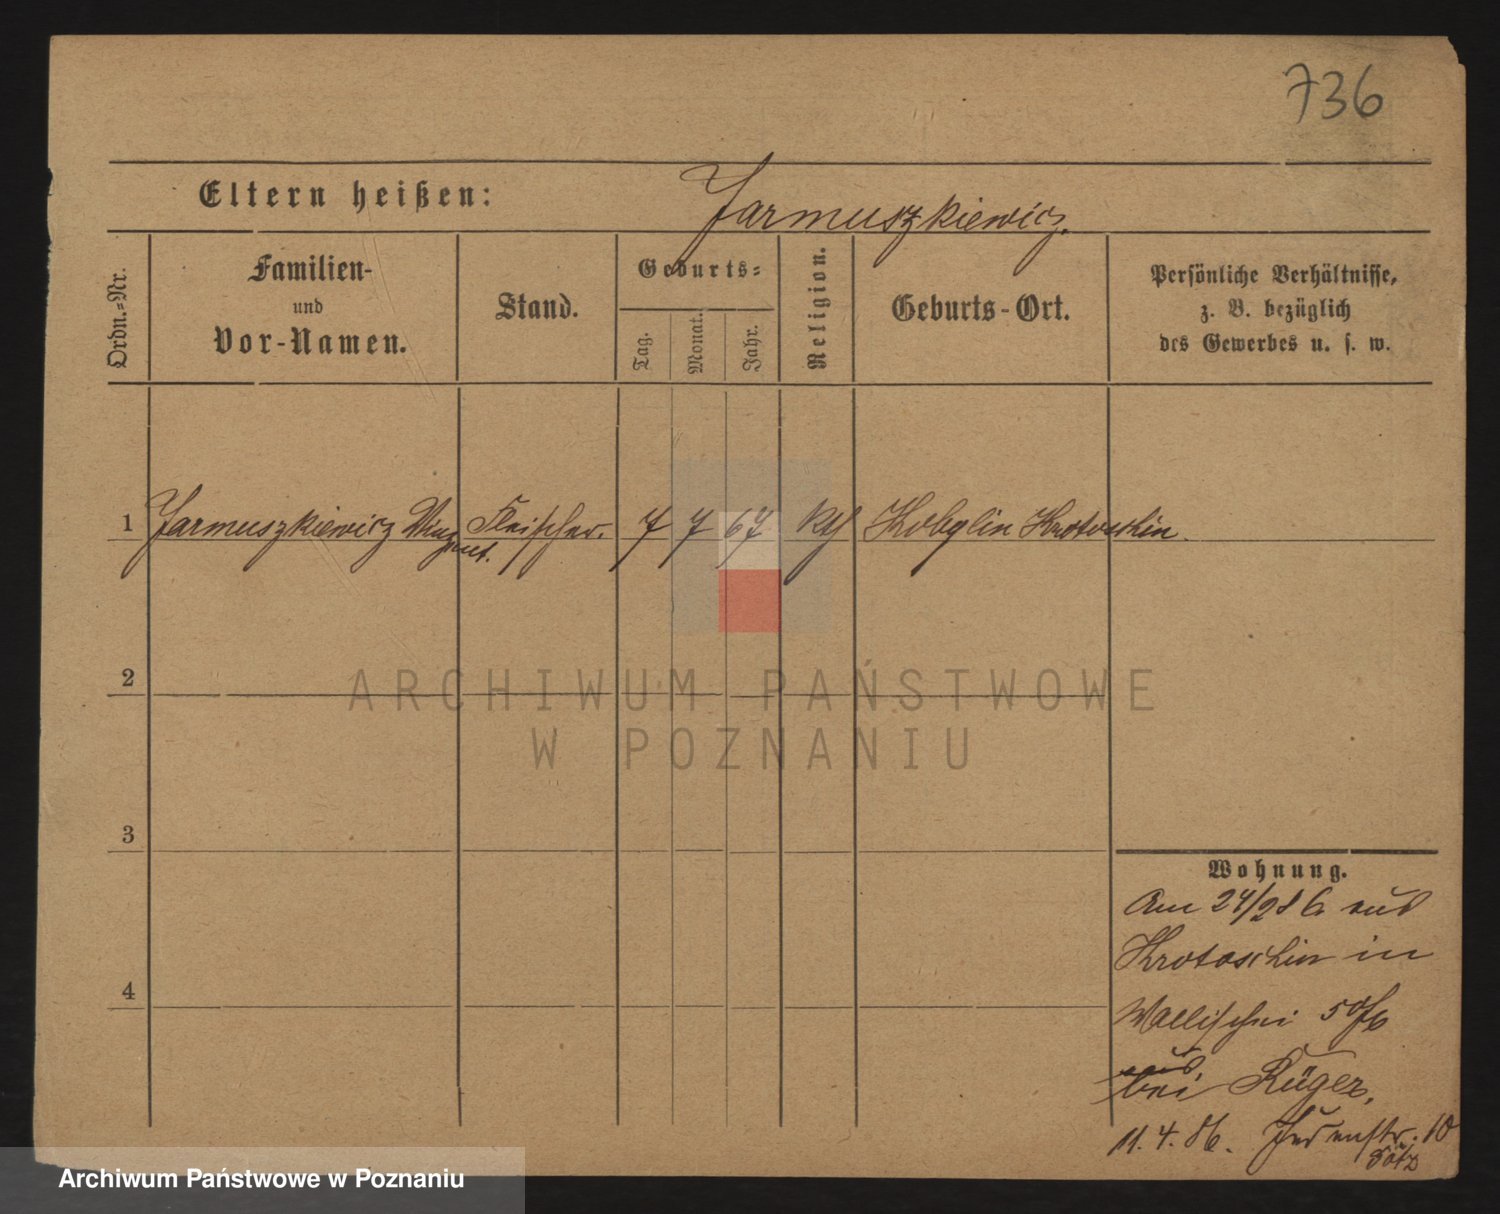 736
Eltern heißen:
Jarmuszkiewicz.
Ordn.-Nr.
Familien-
und
Vor-Namen.
Stand.
Geburts-
Tag.
Monat.
Jahr.
Religion.
Geburts-Ort.
Persönliche Verhältnisse,
z. B. bezüglich
des Gewerbes u. s. w.
1 Jarmuszkiewicz Fleischer. 7 7 67 kth Kobylin Krotoschin.
2
3
4
ARCHIWUM PAŃSTWOWE
W POZNANIU
Wohnung.
Am 24/2 86 aus
Krotoschin in
Wallischei
bei Rüger.
11. 4. 86. Judenstr. 10
Archiwum Państwowe w Poznaniu